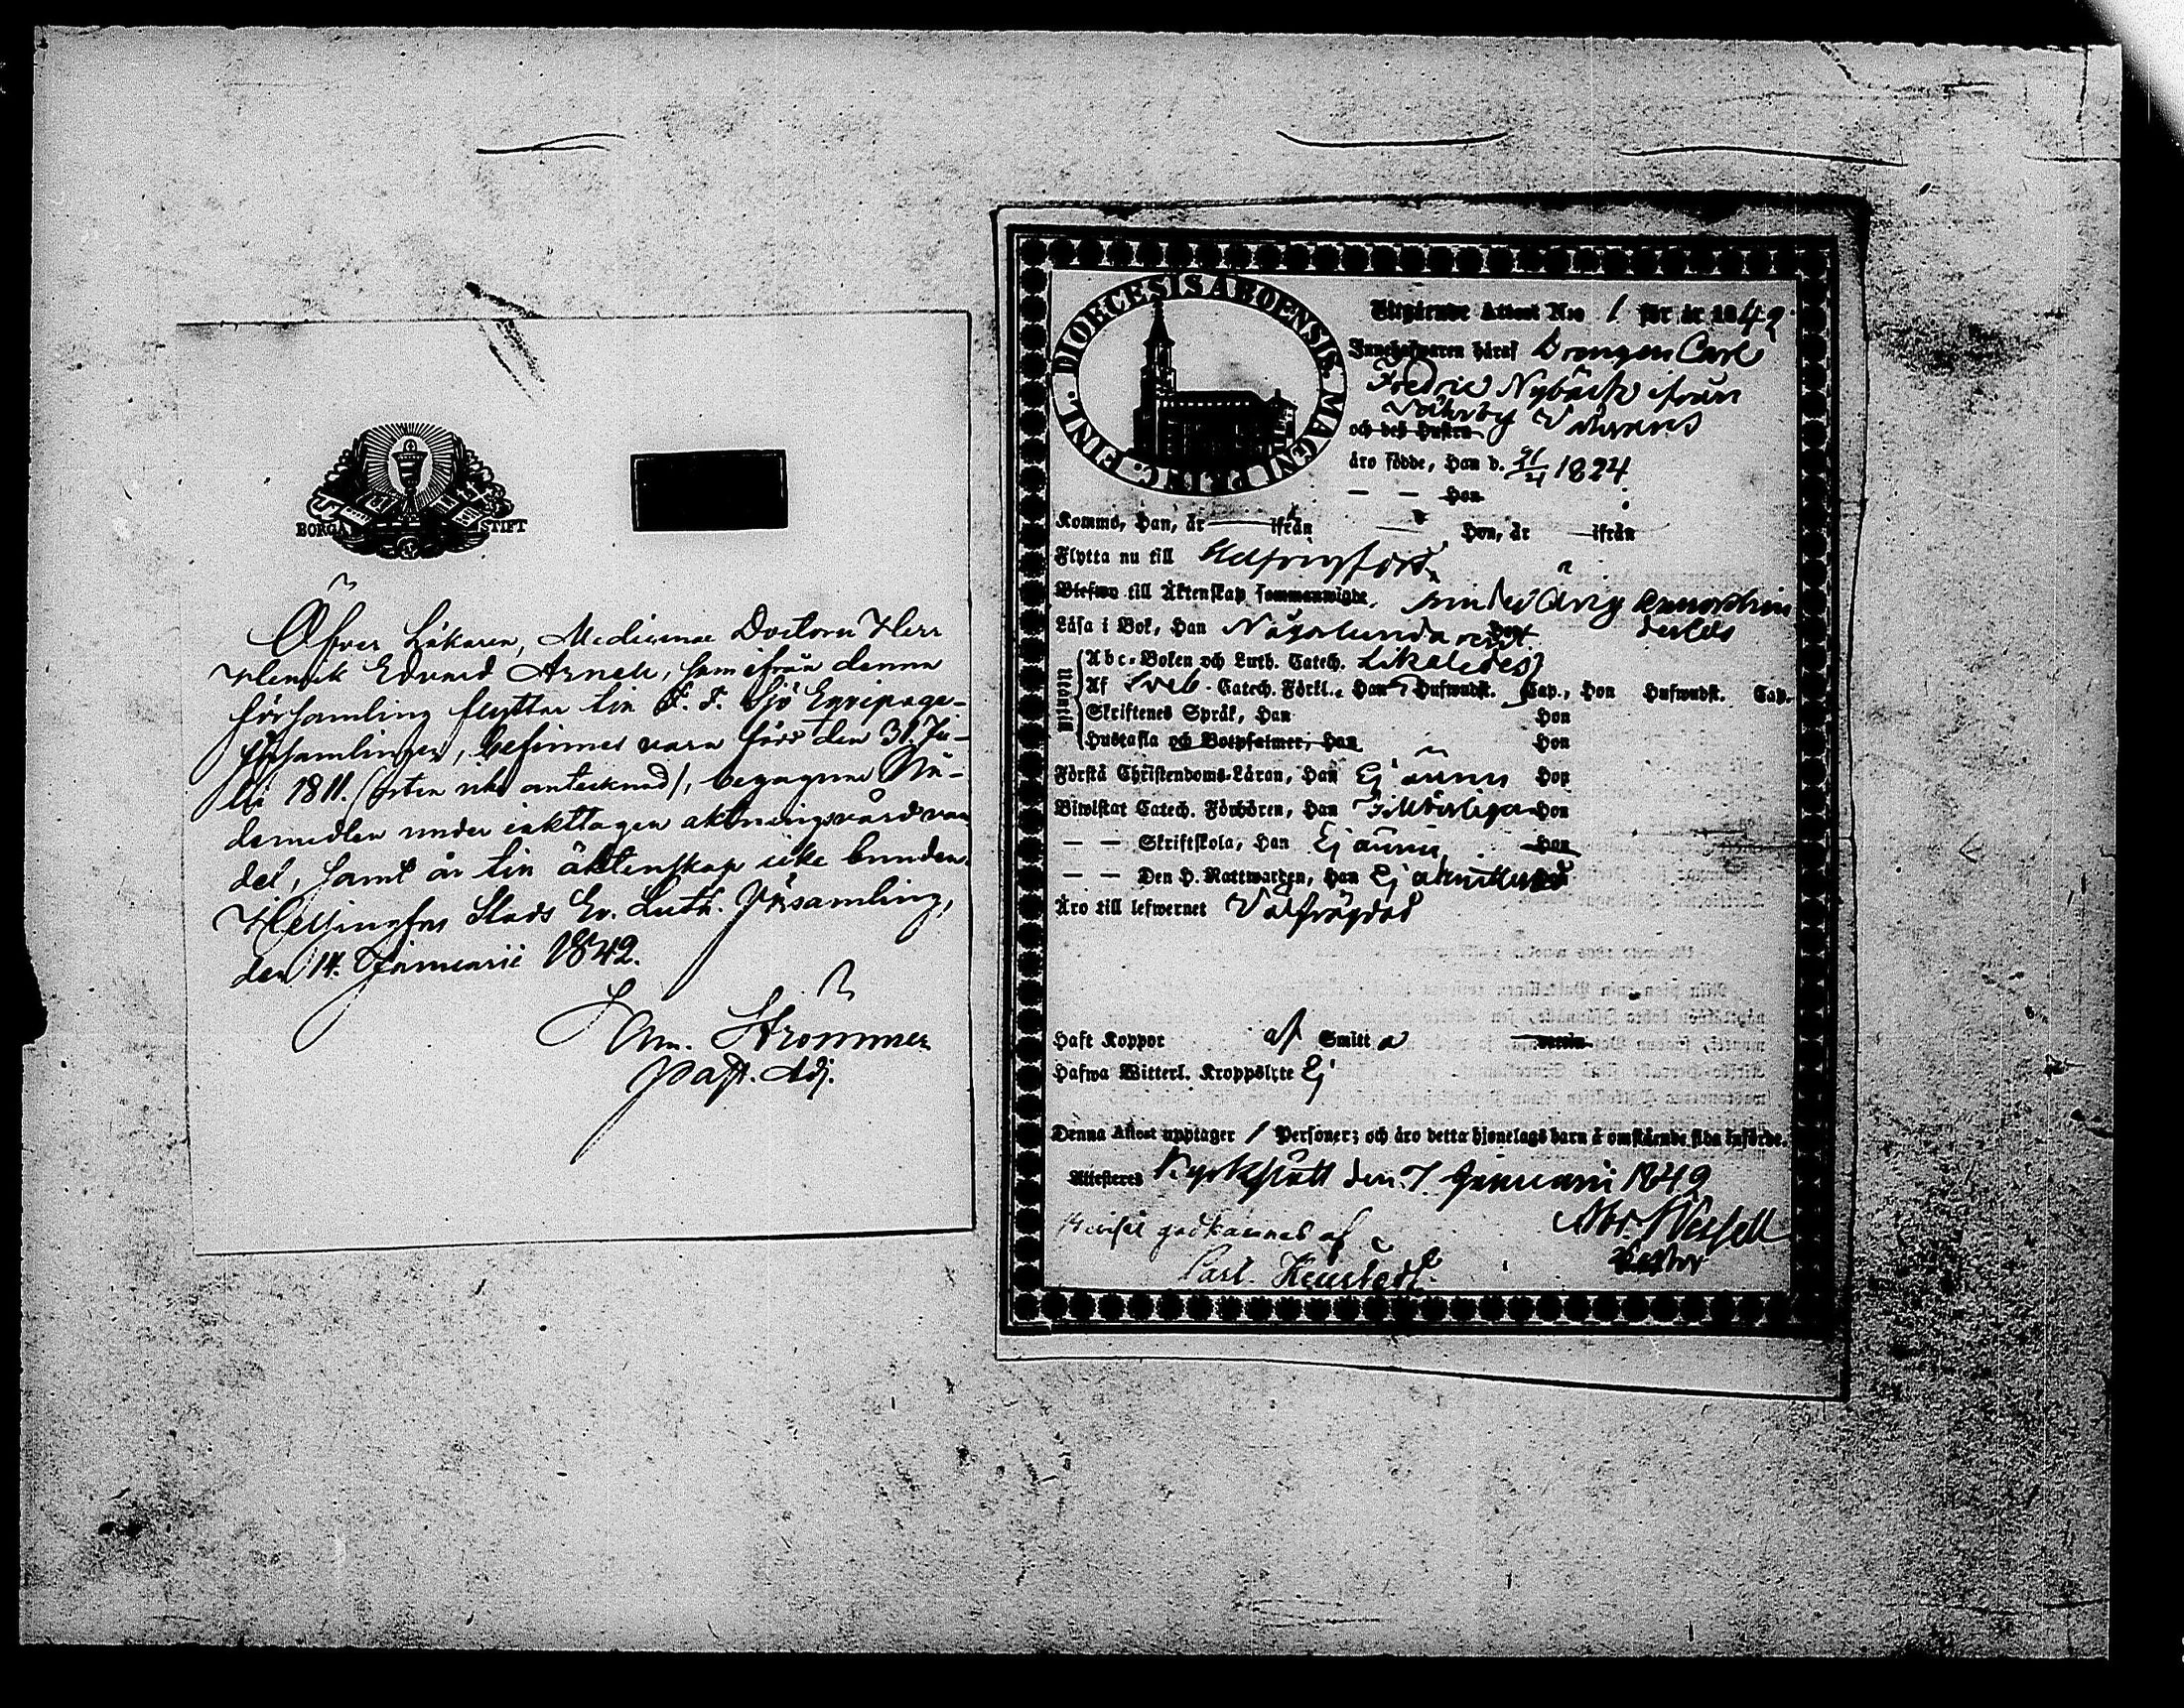 BORGÅ STIFT
Öfver Läkaren, Medicinae Doctorn Herr
Henrik Edvard Arnell, som ifrån denna
församling flyttar till F. F. Sjö Equipage-
församlingen, befinnes vara född den 31 Ju-
lii 1811. (orten icke antecknad), begagnar Nå-
demedlen under iakttagen aktningsvärd van
del, samt är till äktenskap icke bunden.
Helsingfors Stads Ev. Luth. Församling,
den 14. Januarii 1842.
Strommer
Past. Adj.
FINL. DIOECESIS ABOENSIS. MAGNI PRINC.
Utgående Attest N:o 1 för år 1842
Innehafwaren häraf Drängen Carl
Fredric Nybäck ifrån
och des hustru
äro födde, Han d. 1824
— — Hon
Kommo, Han, år — ifrån — Hon, år — ifrån
Flytta nu till Helsingfors
Blefwo till Äktenskap sammanwigde
Läsa i Bok, Han Någorlunda Hon
Utantill
Abc-Boken och Luth. Catech. Likaledes
Af Sveb. Catech. Förkl., Han Hufwudst. Cap., Hon Hufwudst. Cap.
Skriftenes Språk, Han Hon
Hustafla och Botpsalmer, Han Hon
Förstå Christendoms-Läran, Han Ej ännu Hon
Biwistat Catech. Förhören, Han Hon
— — Skriftskola, Han Ej ännu Hon
— — Den H. Nattwarden, Han Ej admitterad
Äro till lefwernet Välfrägdad
Haft Koppor af Smitta
Hafwa Witterl. Kroppslyte Ej
Denna Attest upptager 1 Personer; och äro detta hjonelags barn å omstående sida införde.
Attesteres Kyrkslätt den 7. Januarii 1842
godkännes af
Carl
Pastor